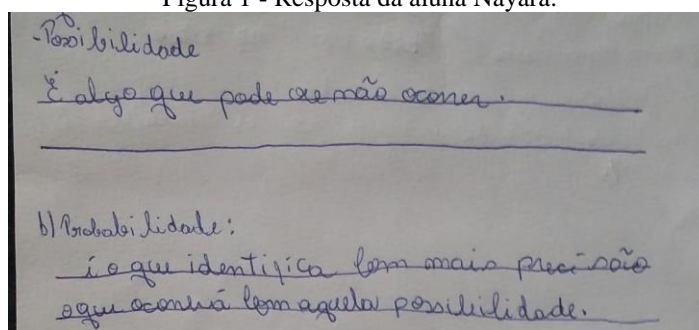 Figura 1 - Resposta da aluna Nayara.
-Possibilidade
É algo que pode ou não ocorrer.
b) Probabilidade:
é o que identifica com mais precisão
o que ocorrerá com aquela possibilidade.